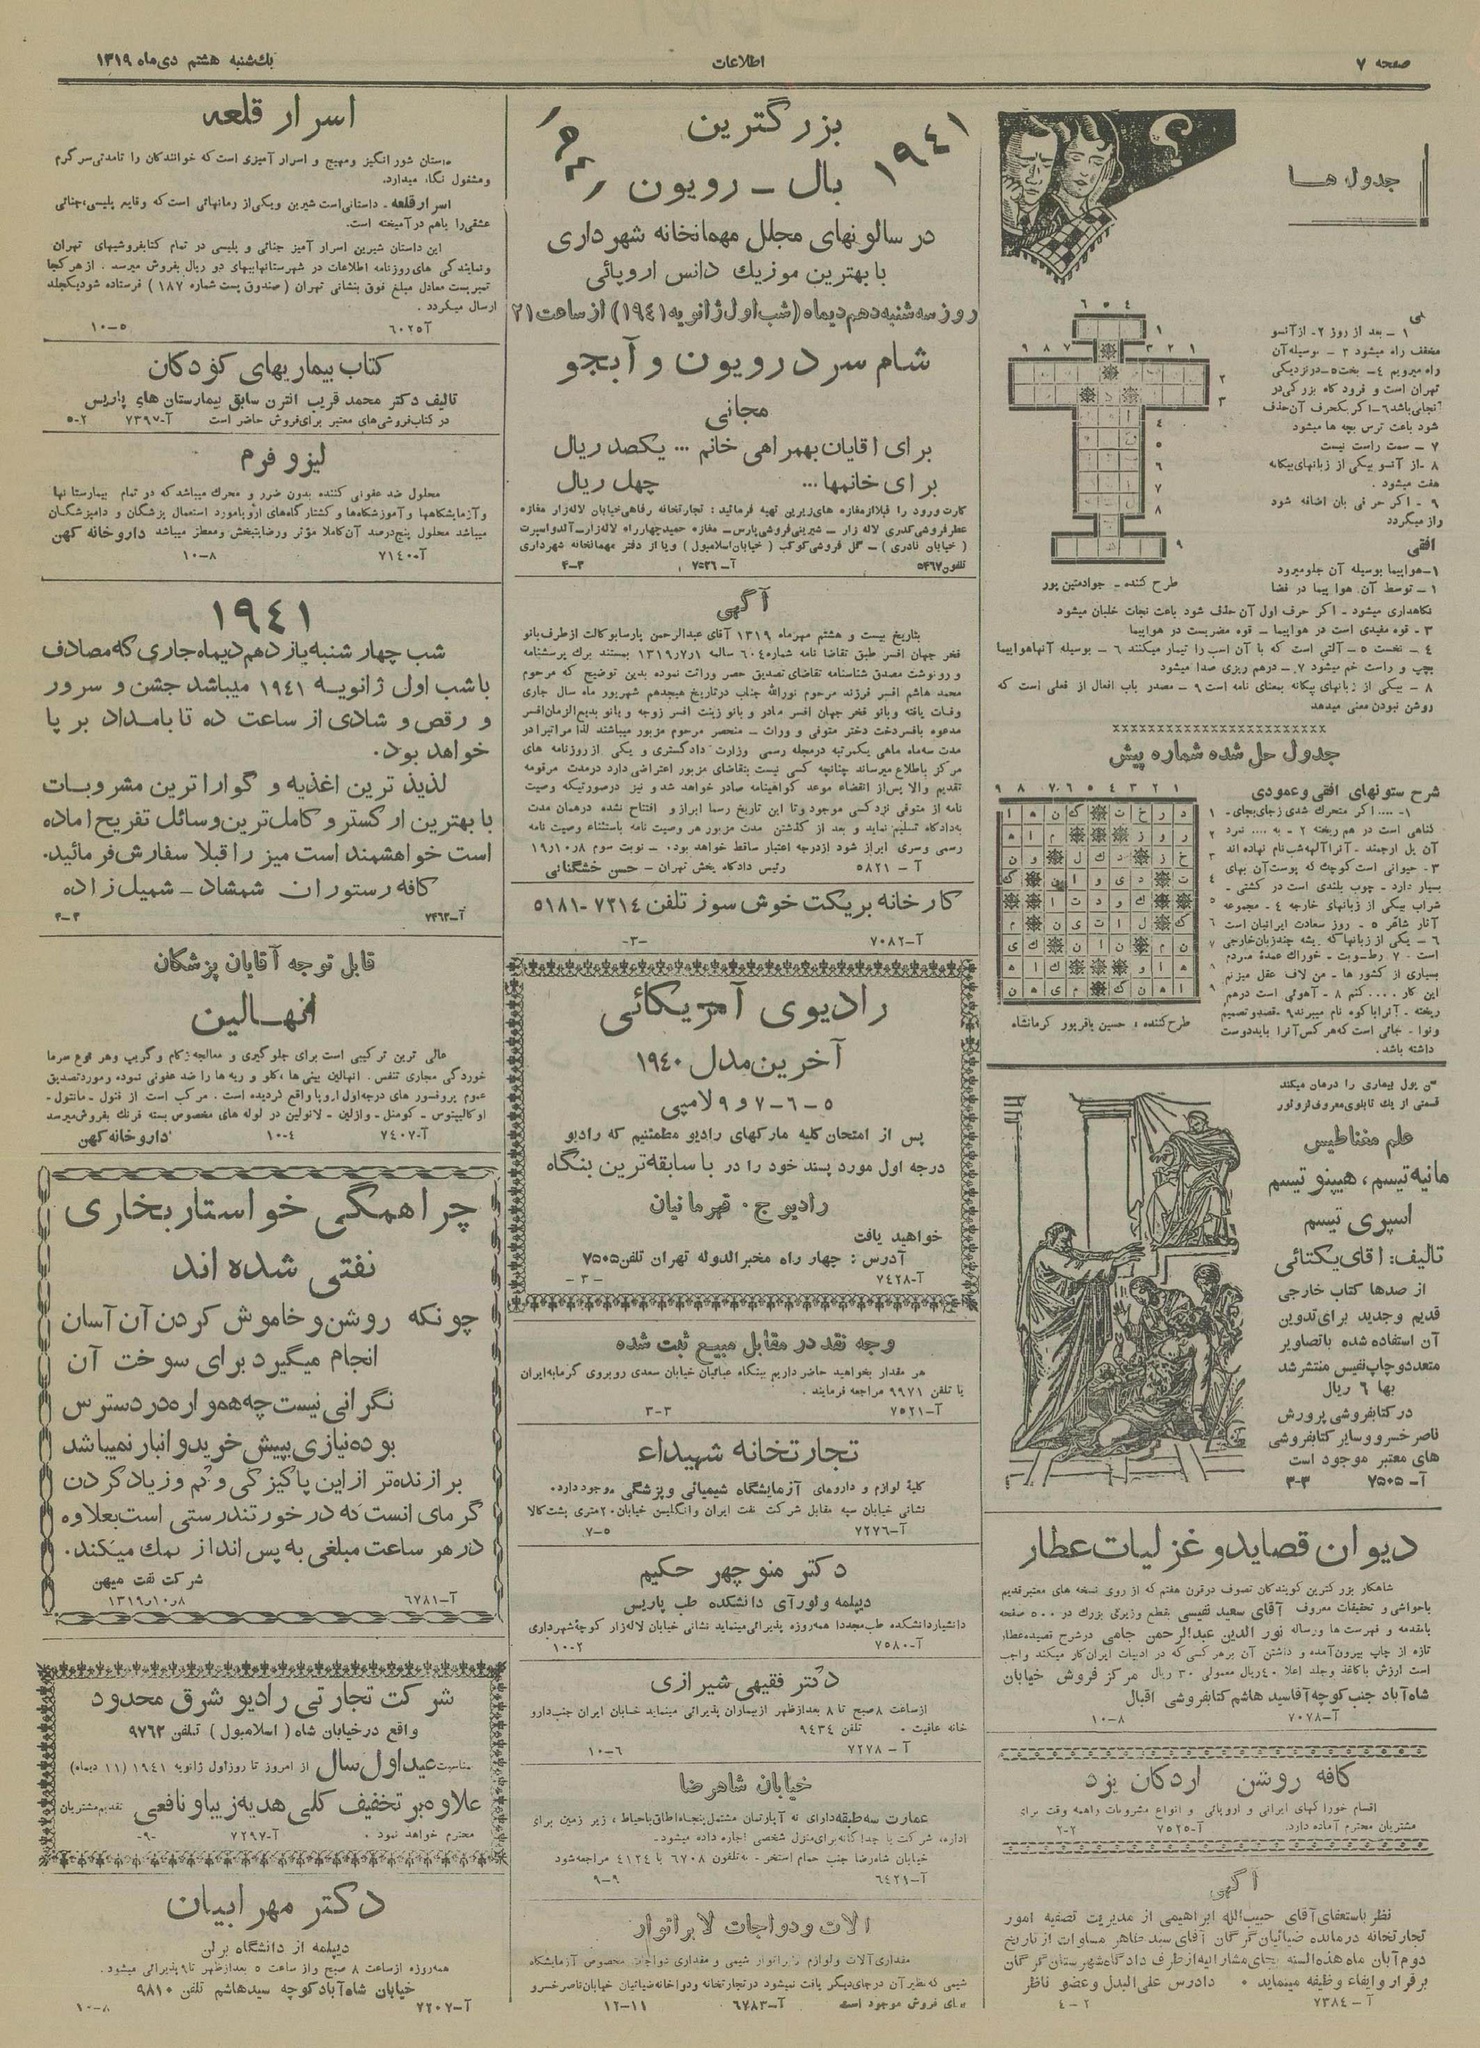 صفحه ۷
اطلاعات
یکشنبه هشتم دی‌ماه ۱۳۱۹
جدول ها
۱ - بعد از روز ۲ - از آنسو
مخفف راه میشود ۳ - بوسیله آن
راه میرویم ٤ - بخت ٥ - در نزدیکی
تهران است و فرود گاه بزرگی در
آنجا می‌باشد ٦ - اگر یکحرف آن حذف
شود باعث ترس بچه ها میشود
۷ - سمت راست نیست
۸ - از آنسو بیکی از زبانهای بیگانه
هفت میشود .
۹ - اگر حرفی بان اضافه شود
راز میگردد
افقی
۱ - هواپیما بوسیله آن جلو میرود
۱ - توسط آن هوا پیما در فضا
نگاهداری میشود - اگر حرف اول آن حذف شود باعث نجات خلبان میشود
۳ - قوه مفیدی است در هواپیما - قوه مضریست در هواپیما
٤ - نخست ٥ - آلتی است که با آن اسب را تیمار میکنند ٦ - بوسیله آنها هواپیما
بچپ و راست خم میشود ۷ - درهم ریزی صدا میشود
۸ - بیکی از زبانهای بیگانه بمعنای نامه است ۹ - مصدر باب افعال از فعلی است که
روشن نبودن معنی میدهد
طرح کننده - جواد متین پور
جدول حل شده شماره پیش
شرح ستونهای افقی و عمودی
۱ - .... اگر متحرک شدی ز جای بجای
گناهی است در هم ریخته ۲ - به .... نمرد
آن یل ارجمند - آنرا آلهه شب نام نهاده اند
۳ - حیوانی است کوچک که پوست آن بهای
بسیار دارد - چوب بلندی است در کشتی -
شراب بیکی از زبانهای خارجه ٤ - مجموعه
آثار شاعر ٥ - روز سعادت ایرانیان است
٦ - یکی از زبانها که ریشه چند زبان خارجی
است ۷ - رطوبت - خوراک عمده مردم
بسیاری از کشور ها - من لاف عقل میزنم
این کار .... کنم ۸ - آهوئی است درهم
ریخته - آنرا با کوه نام میبرند ۹ - قصد و تصمیم
ونوا - جائی است که هر کس آنرا باید دوست
داشته باشد .
طرح کننده : حسین باقرپور کرمانشاه
سن پول بیماری را درمان میکند
قسمتی از یک تابلوی معروف لزولور
علم مغناطیس
مانیه تیسم، هیپنو تیسم
اسپری تیسم
تالیف: آقای یکتائی
از صدها کتاب خارجی
قدیم و جدید برای تدوین
آن استفاده شده با تصاویر
متعدد و چاپ نفیس منتشر شد
بها ٦ ریال
در کتابفروشی پرورش
ناصر خسرو و سایر کتابفروشی
های معتبر موجود است
آ - ۷٥۰٥ ۳-۳
دیوان قصاید و غزلیات عطار
شاهکار بزرگترین گویندگان تصوف در قرن هفتم که از روی نسخه های معتبر قدیم
با حواشی و تحقیقات معروف آقای سعید نفیسی بقطع وزیری بزرگ در ٥۰۰ صفحه
با مقدمه و فهرست ها و رساله نور الدین عبدالرحمن جامی در شرح قصیده عطار
تازه از چاپ بیرون آمده و داشتن آن بر هر کسی که در ادبیات ایران کار میکند واجب
است ارزش با کاغذ و جلد اعلا ٤۰ ریال معمولی ۳۰ ریال مرکز فروش خیابان
شاه آباد جنب کوچه آقا سید هاشم کتابفروشی اقبال
آ - ۷۰۷۸ ۱۰-۸
کافه روشن اردکان یزد
اقسام خوراکهای ایرانی و اروپائی و انواع مشروبات را همه وقت برای
مشتریان محترم آماده دارد. آ-۷٥۲٥ ۲-۲
آگهی
نظر باستعفای آقای حبیب‌الله ابراهیمی از مدیریت تصفیه امور
تجارتخانه درمانده ضیائیان گرگان آقای سید طاهر مساوات از تاریخ
دوم آبان ماه هذه السنه بجای مشارالیه از طرف دادگاه شهرستان گرگان
برقرار و ایفاء وظیفه مینماید ۰ دادرس علی البدل و عضو ناظر
آ - ۷۳۸٤ ۲-٤
۱۹٤۱
۱۹٤۱
بزرگترین
بال - رویون
در سالونهای مجلل مهمانخانه شهرداری
با بهترین موزیک دانس اروپائی
روز سه شنبه دهم دیماه (شب اول ژانویه ۱۹٤۱) از ساعت ۲۱
شام سرد رویون و آبجو
مجانی
برای آقایان بهمراهی خانم ... یکصد ریال
برای خانمها... چهل ریال
کارت ورود را قبلا از مغازه های زیرین تهیه فرمائید : تجارتخانه رفاهی خیابان لاله زار مغازه
عطر فروشی کدری لاله زار - شیرینی فروشی پارس - مغازه حمید چهارراه لاله زار - آلدو اسپرت
( خیابان نادری ) - گل فروشی کوکب ( خیابان اسلامبول ) و یا از دفتر مهمانخانه شهرداری
تلفون ٥٤٦۷ آ - ۷٥۲٦ ۳-٤
آگهی
بتاریخ بیست و هشتم مهرماه ۱۳۱۹ آقای عبدالرحمن پارسا بوکالت از طرف بانو
فخر جهان افسر طبق تقاضا نامه شماره ٦۰٤ سالبه ۱ر۷ر۱۳۱۹ بمستند برک پرسشنامه
و رونوشت مصدق شناسنامه تقاضای تصدیق حصر وراثت نموده بدین توضیح که مرحوم
محمد هاشم افسر فرزند مرحوم نورالله جناب در تاریخ هیجدهم شهریور ماه سال جاری
وفات یافته و بانو فخر جهان افسر مادر و بانو زینت افسر زوجه و بانو بدیع الزمان افسر
مدعوه بافسر دخت دختر متوفی و وراث - منحصر مرحوم مزبور میباشند لذا مراتب را در
مدت سه ماه ماهی یکمرتبه در مجله رسمی وزارت دادگستری و یکی از روزنامه های
مرکز باطلاع میرساند چنانچه کسی نسبت بتقاضای مزبور اعتراضی دارد در مدت مرقومه
تقدیم والا پس از انقضاء موعد گواهینامه صادر خواهد شد و نیز درصورتیکه وصیت
نامه از متوفی نزد کسی موجود و تا این تاریخ رسما ابراز و افتتاح نشده در همان مدت
به دادگاه تسلیم نماید و بعد از گذشتن مدت مزبور هر وصیت نامه باستثناء وصیت نامه
رسمی و سری ابراز شود از درجه اعتبار ساقط خواهد بود - نوبت سوم ۸ر۱۰ر۱۹
آ - ٥۸۲۱ رئیس دادگاه بخش تهران - حسن خشگنانی
کارخانه بریکت خوش سوز تلفن ۷۲۱٤ - ٥۱۸۱
آ-۷۰۸۲ -۳-
رادیوی آمریکائی
آخرین مدل ۱۹٤۰
٥-٦-۷ و ۹ لامپی
پس از امتحان کلیه مارکهای رادیو مطمئنیم که رادیو
درجه اول مورد پسند خود را در با سابقه ترین بنگاه
رادیو ج . قهرمانیان
خواهید یافت
آدرس : چهار راه مخبر الدوله تهران تلفن ۷٥۰٥
آ-۷٤۲۸ -۳-
وجه نقد در مقابل مبیع ثبت شده
هر مقدار بخواهید حاضر داریم بنگاه عباثیان خیابان سعدی روبروی گرمابه ایران
با تلفن ۹۹۷۱ مراجعه فرمایند .
آ-۷٥۲۱ ۳-۳
تجارتخانه شهیداء
کلیهٔ لوازم و داروهای آزمایشگاه شیمیائی و پزشگی موجود دارد
نشانی خیابان سپه مقابل شرکت نفت ایران و انگلیس خیابان ۲۰ متری پشت کالا
آ-۷۲۷٦ ٥-۷
دکتر منوچهر حکیم
دیپلمه و لورآی دانشکده طب پاریس
دانشیار دانشکده طب مجددا همه روزه پذیرائی مینماید نشانی خیابان لاله زار کوچه شهرداری
آ-۷٥۸۰ ۲-۱۰
دکتر فقیهی شیرازی
از ساعت ۸ صبح تا ۸ بعدازظهر از بیماران پذیرائی مینماید خیابان ایران جنب دارو
خانه عافیت ۰ تلفن ۹٤۳٤
آ - ۷۲۷۸ ٦-۱۰
خیابان شاهرضا
عمارت سه طبقه دارای نه آپارتمان مشتمل پنجاه اطاق با حیاط ، زیر زمین برای
اداره، شرکت یا جداگانه برای منزل شخصی اجاره داده میشود -
خیابان شاهرضا جنب حمام استخر - به تلفون ٦۷۰۸ یا ٤۱۲٤ مراجعه شود
آ-٦٤۲۹ ۹-۹
آلات و دواجات لابراتوار
مقداری آلات و لوازم لابراتوار شیمی و مقداری دواجات مخصوص آزمایشگاه
شیمی که نظیر آن در جای دیگر یافت نمیشود در تجارتخانه و دواخانه ضیائیان خیابان ناصر خسرو
برای فروش موجود است آ-٦۷۸۳ ۱۱-۱۲
اسرار قلعه
داستان شور انگیز و مهیج و اسرار آمیزی است که خوانندگان را تا مدتی سرگرم
و مشغول نگاه میدارد.
اسرار قلعه - داستانی است شیرین و یکی از رمانهائی است که وقایع پلیسی، جنائی
عشقی را باهم در آمیخته است.
این داستان شیرین اسرار آمیز جنائی و پلیسی در تمام کتابفروشیهای تهران
و نمایندگی های روزنامه اطلاعات در شهرستانها ببهای دو ریال بفروش میرسد . از هر کجا
تمبر پست معادل مبلغ فوق بنشانی تهران ( صندوق پست شماره ۱۸۷ ) فرستاده شود یکجلد
ارسال میگردد .
آ٦۰۲٥ ٥-۱۰
کتاب بیماریهای کودکان
تالیف دکتر محمد قریب انترن سابق بیمارستان های پاریس
در کتاب فروشی های معتبر برای فروش حاضر است آ-۷۳۹۷ ۲-٥
لیزوفرم
محلول ضد عفونی کننده بدون ضرر و محرک میباشد که در تمام بیمارستانها
و آزمایشگاهها و آموزشگاه‌ها و کشتارگاه‌های اروپا مورد استعمال پزشگان و دامپزشگان
میباشد محلول پنج درصد آن کاملا مؤثر و رضایتبخش و معطر میباشد داروخانه کهن
آ-۷۱٤۰۰ ۸-۱۰
۱۹٤۱
شب چهارشنبه یازدهم دیماه جاری که مصادف
با شب اول ژانویه ۱۹٤۱ میباشد جشن و سرور
و رقص و شادی از ساعت ده تا بامداد بر پا
خواهد بود.
لذیذ ترین اغذیه و گوارا ترین مشروبات
با بهترین ارکستر و کامل ترین وسائل تفریح آماده
است خواهشمند است میز را قبلا سفارش فرمائید.
کافه رستوران شمشاد - شمیل زاده
قابل توجه آقایان پزشکان
انهالین
عالی ترین ترکیبی است برای جلوگیری و معالجه زکام و گریپ و هر نوع سرما
خوردگی مجاری تنفس . انهالین بینی ها ، گلو و ریه ها را ضد عفونی نموده و مورد تصدیق
عموم پروفسور های درجه اول اروپا واقع گردیده است . مرکب است از فنول - مانتول -
اوکالیپتوس - کومنل - وازلین - لانولین در لوله های مخصوص بسته فرنگ بفروش میرسد
آ-۷٤۰۷ ٤-۱۰ داروخانه کهن
چرا همگی خواستار بخاری
نفتی شده اند
چونکه روشن و خاموش کردن آن آسان
انجام میگیرد برای سوخت آن
نگرانی نیست چه همواره در دسترس
بوده نیازی بپیش خرید و انبار نمیباشد
برازنده‌تر از این پاکیزگی و کم و زیاد کردن
گرمای آنست که در خور تندرستی است بعلاوه
در هر ساعت مبلغی به پس انداز کمک میکند.
شرکت نفت میهن
آ-٦۷۸۱ ۸ر۱۰ر۱۳۱۹
شرکت تجارتی رادیو شرق محدود
واقع در خیابان شاه ( اسلامبول ) تلفن ۹۷٦۲
بمناسبت عید اول سال از امروز تا روز اول ژانویه ۱۹٤۱ (۱۱ دیماه)
علاوه بر تخفیف کلی هدیه زیبا و نافعی تقدیم مشتریان
محترم خواهد نمود ۰ آ-۷۲۹۷ -۹-
دکتر مهرابیان
دیپلمه از دانشگاه برلن
همه‌روزه از ساعت ۸ صبح و از ساعت ٥ بعدازظهر تا ۹ پذیرائی میشود.
خیابان شاه آباد کوچه سیدهاشم تلفن ۹۸۱۰
آ-۷۲۰۷ ۸-۱۰